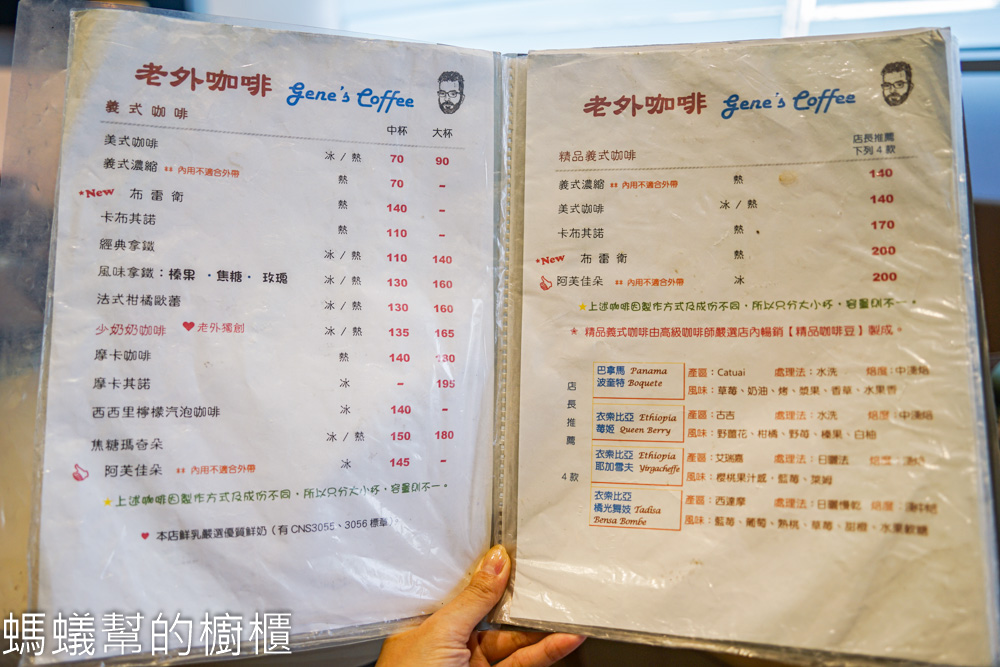 老外咖啡 Gene's Coffee
義式咖啡 中杯 大杯
美式咖啡 冰/熱 70 90
義式濃縮 內用不適合外帶 熱 70 -
*New 布雷衛 熱 140 -
卡布其諾 熱 110 -
經典拿鐵 冰/熱 110 140
風味拿鐵：榛果．焦糖．玫瑰 冰/熱 130 160
法式柑橘歐蕾 冰/熱 130 160
少奶奶咖啡 ♥老外獨創 冰/熱 135 165
摩卡咖啡 熱 140 180
摩卡其諾 冰 - 195
西西里檸檬汽泡咖啡 冰 140 -
焦糖瑪奇朵 冰/熱 150 180
阿芙佳朵 內用不適合外帶 冰 145 -
★上述咖啡因製作方式及成份不同，所以只分大小杯，容量則不一。
♥ 本店鮮乳嚴選優質鮮奶（有 CNS3055、3056 標章）
老外咖啡 Gene's Coffee
精品義式咖啡 店長推薦
下列4款
義式濃縮 內用不適合外帶 熱 140
美式咖啡 冰/熱 140
卡布其諾 熱 170
*New 布雷衛 熱 200
阿芙佳朵 內用不適合外帶 冰 200
★上述咖啡因製作方式及成份不同，所以只分大小杯，容量則不一。
* 精品義式咖啡由高級咖啡師嚴選店內暢銷【精品咖啡豆】製成。
店長推薦 4款
巴拿馬 Panama 產區：Catuai 處理法：水洗 焙度：中淺焙
波奎特 Boquete 風味：草莓、奶油、烤、漿果、香草、水果香
衣索比亞 Ethiopia 產區：古吉 處理法：水洗 焙度：中淺焙
莓姬 Queen Berry 風味：野薑花、柑橘、野莓、榛果、白柚
衣索比亞 Ethiopia 產區：艾瑞嘉 處理法：日曬法 焙度：淺焙
耶加雪夫 Yirgacheffe 風味：櫻桃果汁感、藍莓、萊姆
衣索比亞 產區：西達摩 處理法：日曬慢乾 焙度：淺中焙
橘光舞姬 Tadisa 風味：藍莓、葡萄、熟桃、草莓、甜橙、水果軟糖
Bensa Bombe
螞蟻幫的櫥櫃